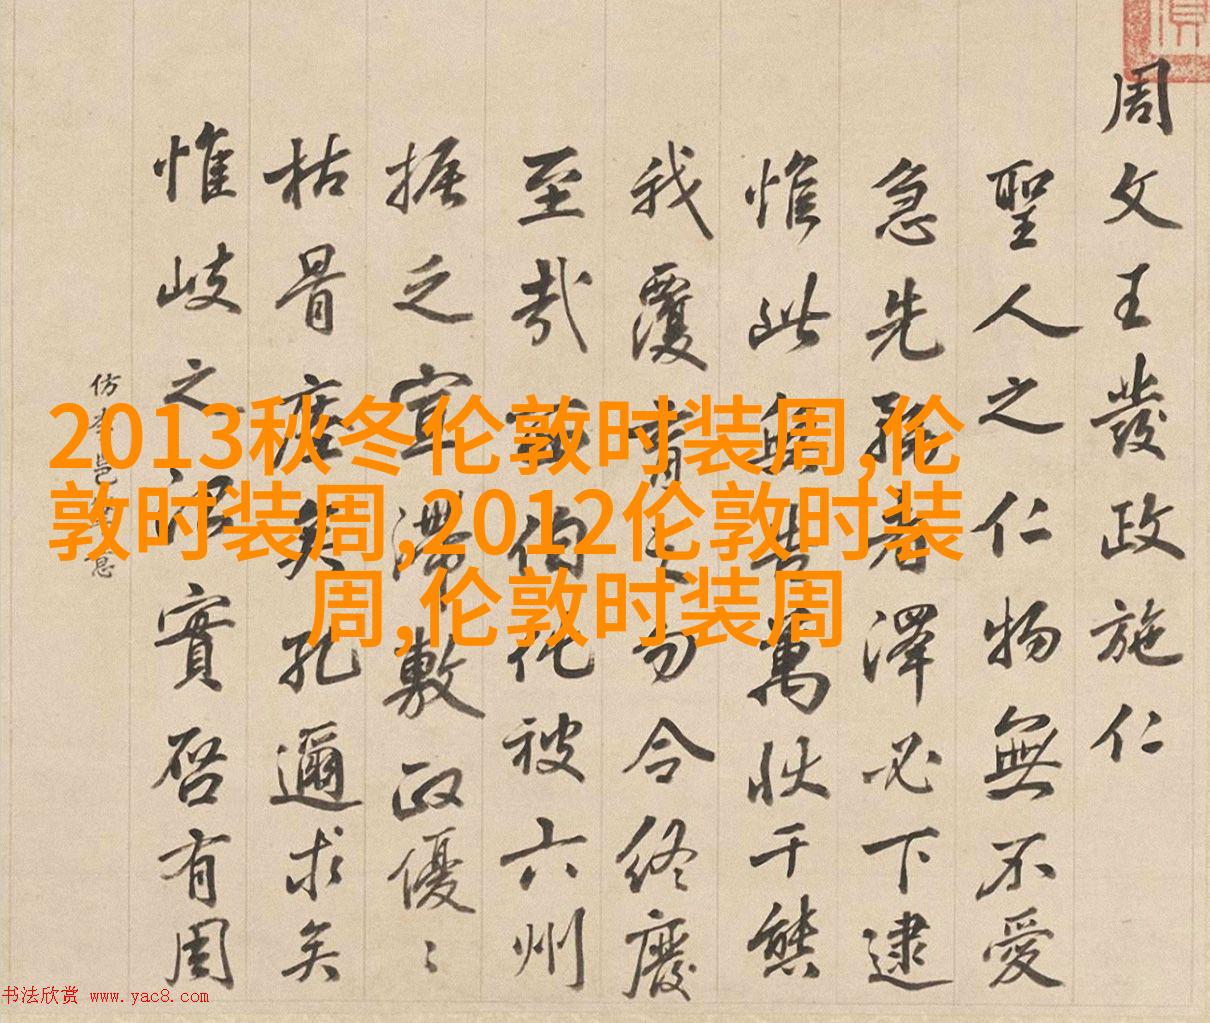 周文王發政施仁
聖人之仁物無不愛
急先者澤必下逮
惟此無告萬狀千態
我覆育勿令終廢
至哉伯化被六州
振乏宣滯敷政優〻
枯骨矣孔邇求矣
惟岐之實啓有周
仿
2013秋冬伦敦时装周,伦
敦时装周,2012伦敦时装
周,伦敦时装周
书法欣赏 www.yac8.com